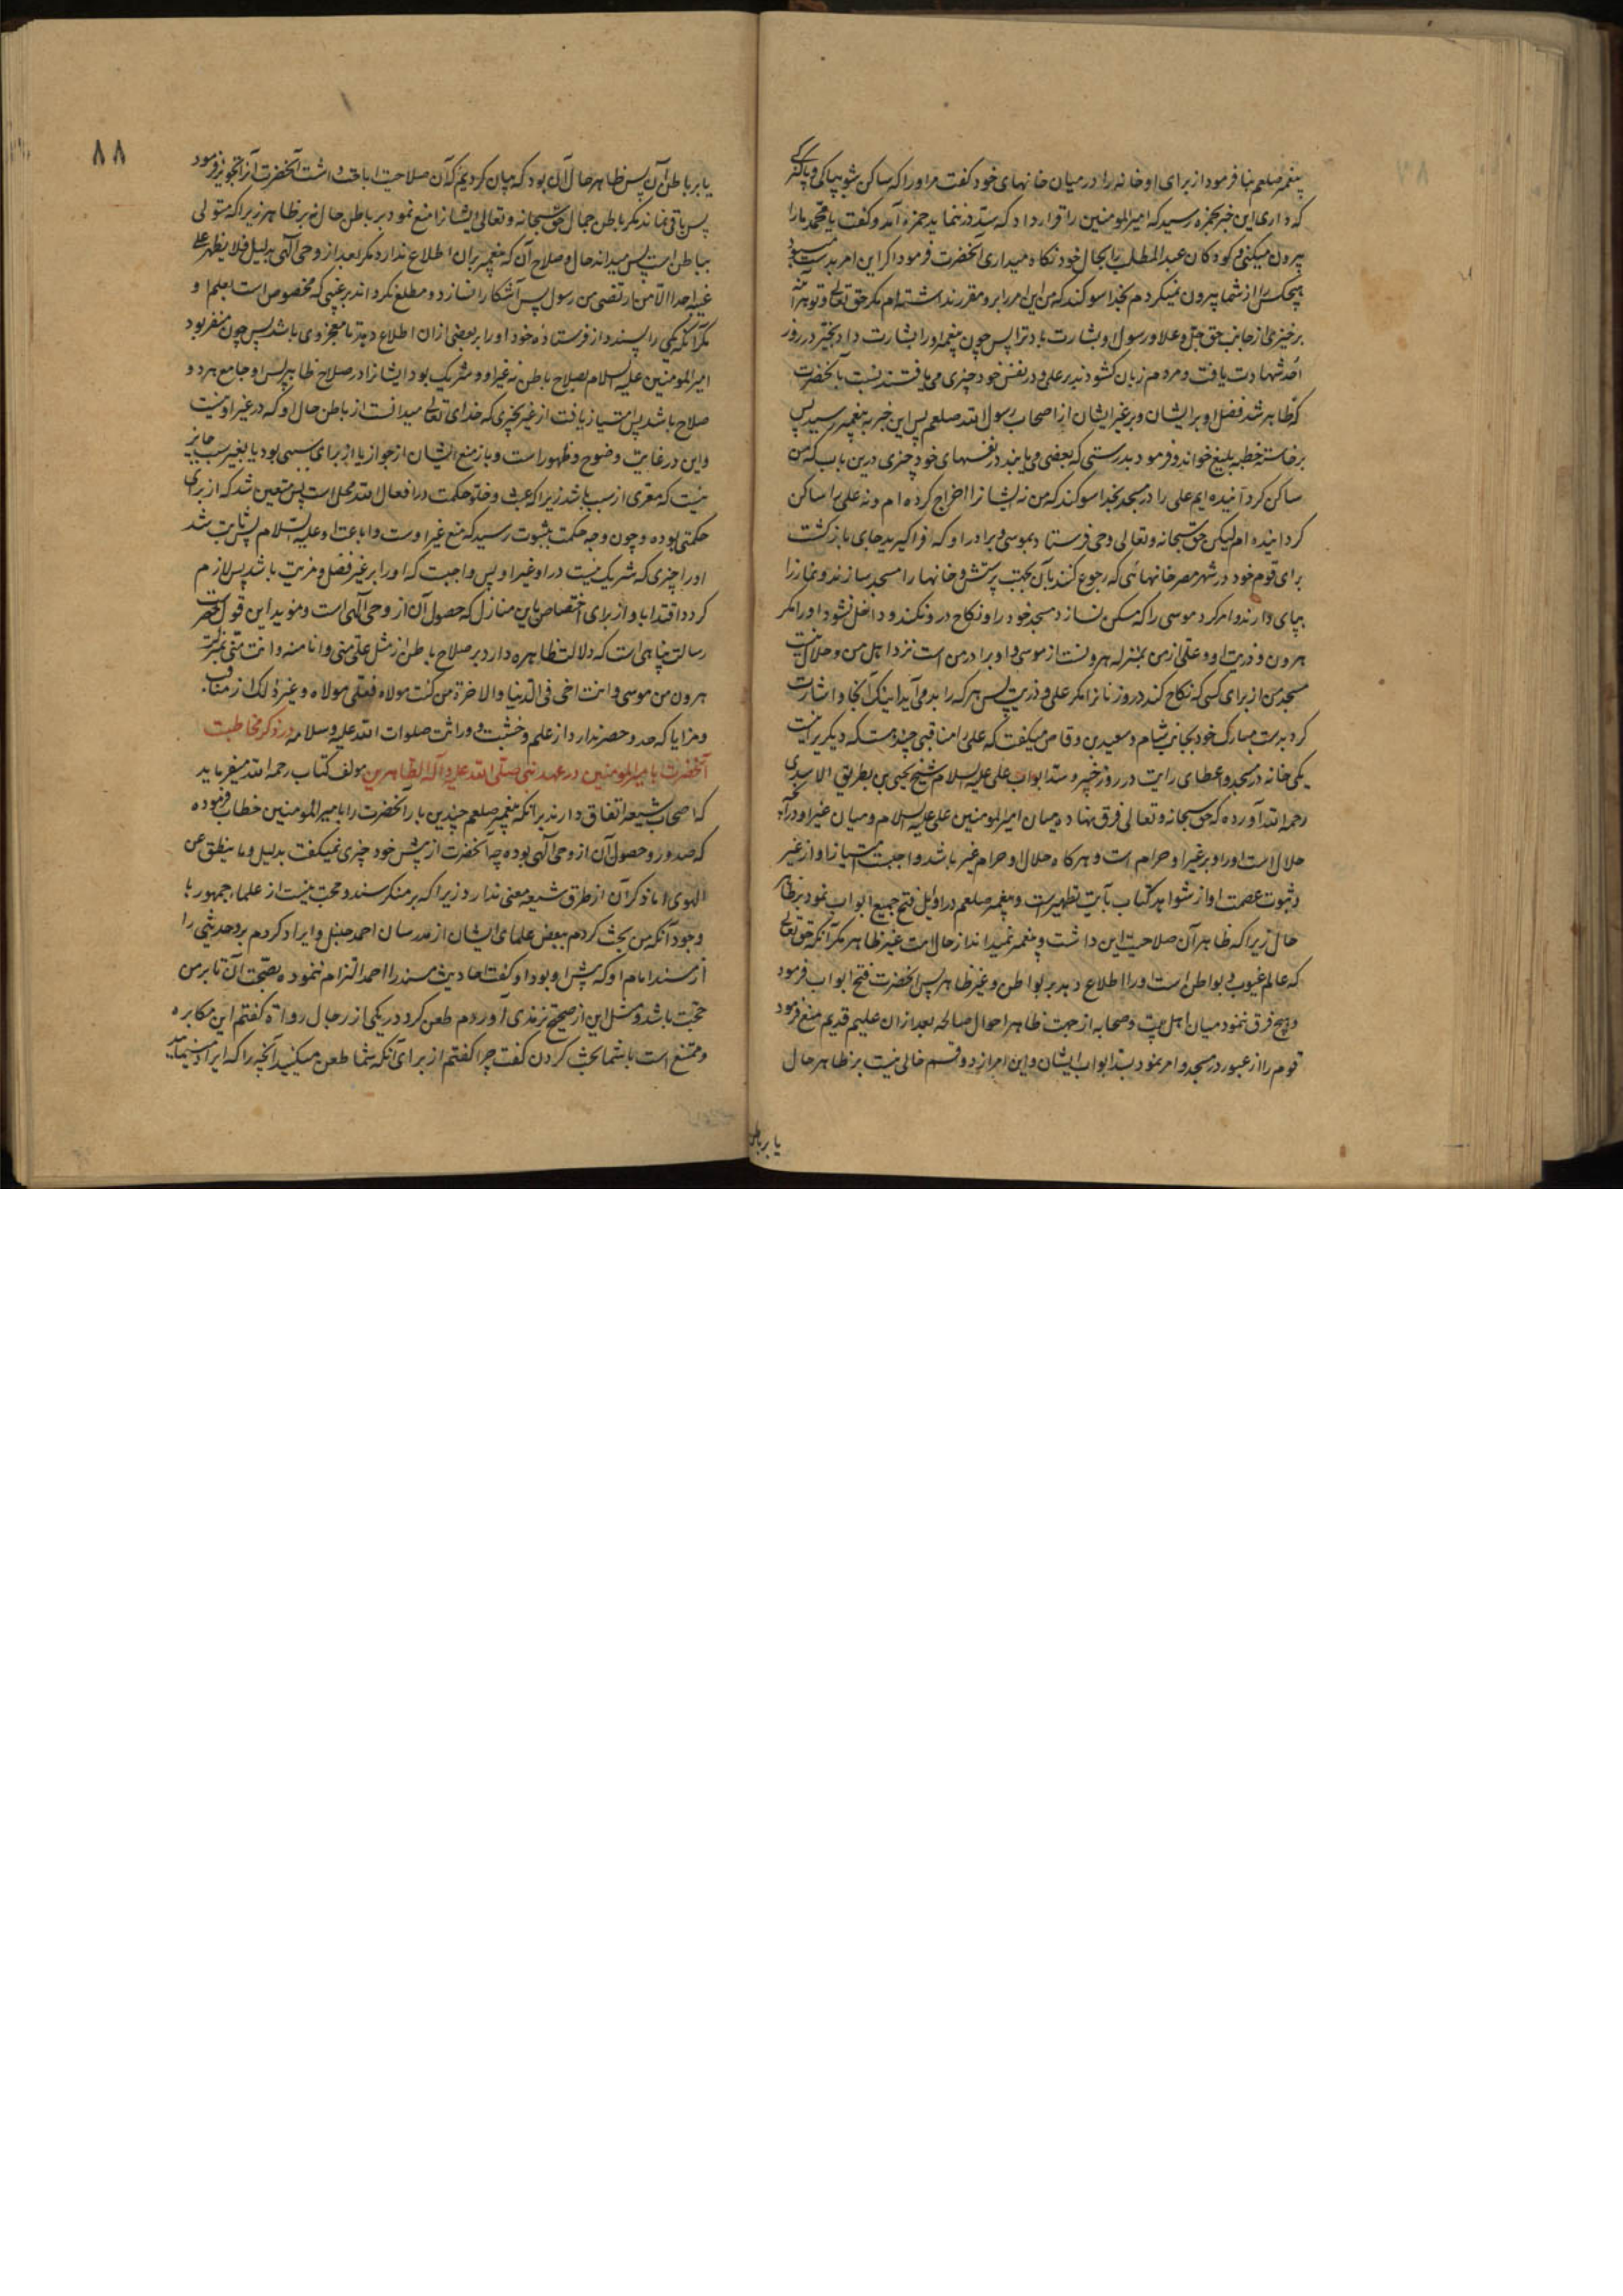 پیغمبر صلعم بنا فرمود از برای او خانه را در میان خانهای خود گفت مر او را که ساکن شو بپاکی و پاکیزگی
که داری این خبر بحمزه رسید که امیرالمومنین را قرار داد که سد در ننماید حمزه آمد و گفت یا محمد ما را
بیرون میکنی و کودکان عبدالمطلب را بحال خود نگاه میداری آنحضرت فرمود اگر این امر بدست من بود
هیچکس را از شما بیرون نمیکردم بخدا سوگند که من این امر را برو مقرر نداشته‌ام مگر حق تعالی و تو هر آینه
بر خیری از جانب حق جل و علا و رسول او بشارت باد ترا پس چون پیغمبر او را بشارت داد بخیر در روز
احد شهادت یافت و مردم زبان گشودند بر علی و در نفس خود چیزی می یافتند نسبت بآنحضرت
که ظاهر شد فضل او بر ایشان و بر غیر ایشان از اصحاب رسول الله صلعم پس این خبر به پیغمبر رسید پس
برخاسته خطبه بلیغ خواند و فرمود بدرستی که بعضی می یابند در نفسهای خود چیزی درین باب که من
ساکن گردانیده ایم علی را در مسجد بخدا سوگند که من نه ایشانرا اخراج کرده ام و نه علی را ساکن
گردانیده ام لیکن حق سبحانه و تعالی وحی فرستاد بموسی و برادر او که فراگیرید جای بازگشت
برای قوم خود در شهر مصر خانهائی که رجوع کنند بآن بجهت پرستش و خانها را مسجد سازند و نماز را
بپای دارند و امر کرد موسی را که مسکن نسازد مسجد خود را و نکاح درو نکند و داخل نشود او را مگر
هرون و ذریت او و علی از من بمنزله هرونست از موسی و او برادر من است نزد اهل من و حلال نیست
مسجد من از برای کسی که نکاح کند درو زنانرا مگر علی و ذریت پس هر که را بد می آید اینک آنجا و اشارت
کرد بدست مبارک خود بجانب شام و سعید بن وقاص میگفت که علی را مناقبی چندست که دیگریرا نیست
یکی خانه در مسجد و اعطای رایت در روز خیبر و سد ابواب علی علیه السلام شیخ یحیی بن بطریق الاسدی
رحمه الله آورده که حق سبحانه و تعالی فرق نهاده میان امیرالمومنین علی علیه السلام و میان غیر او در آنچه
حلال است او را و بر غیر او حرام است و هرگاه حلال او حرام غیر باشد واجبست امتیاز او از غیر
و ثبوت عصمت او از شواهد کتاب بآیت تطهیر است و پیغمبر صلعم در اوایل فتح جمیع ابواب نمود بر ظاهر
حال زیرا که ظاهر آن صلاحیت این داشت و پیغمبر نمیداند از حال امت غیر ظاهر مگر آنکه حق تعالی
که عالم غیوب و بواطن است او را اطلاع دهد بر بواطن و غیر ظاهر پس آنحضرت فتح ابواب فرمود
و هیچ فرق ننمود میان اهل بیت و صحابه از جهت ظاهر احوال صالحه بعد از ان علیم قدیم منع فرمود
قوم را از عبور در مسجد و امر نمود بسد ابواب ایشان و این امر از دو قسم خالی نیست بر ظاهر حال
یا بر باطن
۸۸
یا بر باطن آن پس ظاهر حال آن بود که بیان کردیم که آن صلاحیت اباحت داشت آنحضرت آنرا تجویز فرمود
پس باقی نماند مگر باطن حال حق سبحانه و تعالی ایشانرا منع نمود بر باطن حال نه بر ظاهر زیرا که متولی
بباطن است پس میداند حال و صلاح آن که پیغمبر بران اطلاع ندارد مگر بعد از وحی الهی بدلیل فلا یظهر علی
غیبه احدا الا من ارتضی من رسول پس آشکارا نسازد و مطلع نگرداند بر غیبی که مخصوص است بعلم او
مگر آنکه یکی را پسندد از فرستاده خود او را بر بعضی از ان اطلاع دهد تا معجز وی باشد پس چون منفر بود
امیرالمومنین علیه السلام بصلاح باطن نه غیر او و شریک بود ایشانرا در صلاح ظاهر پس او جامع هر دو
صلاح باشد پس امتیاز یافت از غیر بچیزی که خدای تعالی میدانست از باطن حال او که در غیر او نیست
و این در غایت وضوح و ظهور است و باز منع ایشان از جواز یا از برای سببی بود یا بغیر سبب جایز
نیست که معری از سبب باشد زیرا که عبث و خلو حکمت در افعال الله محال است پس متعین شد که از برای
حکمتی بوده و چون وجه حکمت بثبوت رسید که منع غیر اوست و اباحت او علیه السلام پس ثابت شد
او را چیزی که شریک نیست در او غیر او پس واجبست که او را بر غیر فضل و مزیت باشد پس لازم
گردد اقتدا باو از برای اختصاص باین منازل که حصول آن از وحی الهی است و موید این قول حضرت
رسالت پناهی است که دلالت ظاهره دارد بر صلاح باطن از مثل علی منی و انا منه و انت منی بمنزلة
هرون من موسی و انت اخی فی الدنیا و الاخرة من کنت مولاه فعلی مولاه و غیر ذلک از مناقب
و مزایا که حد و حصر ندارد از علم و خشیت و وراثت صلوات الله علیه و سلامه در ذکر مخاطبت
آنحضرت بامیرالمومنین در عهد نبی صلی الله علیه و آله الطاهرین مولف کتاب رحمه الله میفرماید
که اصحاب شیعه اتفاق دارند برآنکه پیغمبر صلعم چندین بار آنحضرت را بامیرالمومنین خطاب فرموده
که صدور و حصول آن از وحی الهی بوده چه آنحضرت از پیش خود چیزی نمیگفت بدلیل و ما ینطق عن
الهوی اما ذکر آن از طرق شیعه معنی ندارد زیرا که بر منکر سند و حجت نیست از علماء جمهور با
وجود آنکه من بحث کردم ببعض علمای ایشان از مدرسان احمد حنبل و ایراد کردم برو حدیثی را
از مسند امام او که پیش او بود او گفت احادیث مسند را احمد التزام ننموده بصحت آن تا بر من
حجت باشد و مثل این از صحیح ترمذی آوردم طعن کرد در یکی از رجال رواة گفتم این مکابره
و ممتنع است با شما بحث کردن گفت چرا گفتم از برای آنکه شما طعن میکنید آنچه را که ایراد مینماید